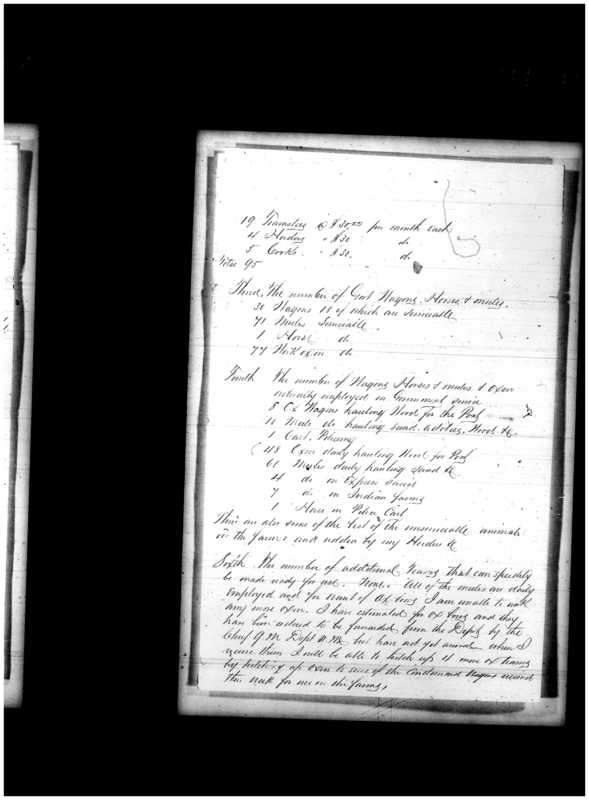 19 Teamsters @ $30.00 per month each
4 Herders " $30 do
5 Cooks " $30. do
Total 95
Third, The number of Govt Wagons, Horses & mules,
30 Wagons 18 of which are serviceable
71 Mules Serviceable
1 Horse do
77 Work oxen do
Fourth The number of Wagons Horses & mules & Oxen
actually employed in Government service
5 Ox Wagons hauling Wood for the Post
10 Mule do hauling sand, adobes, Wood &c
1 Cart, Policing
48 Oxen daily hauling Wood for Post
61 Mules daily hauling sand &c
4 do on Express service
7 do on Indian farms
1 Horse in Police Cart
There are also some of the best of the unserviceable animals
on the farms and ridden by my Herders &c
Sixth The number of additional teams that can speedily
be made ready for use. None. All of the mules are daily
employed and for want of Ox bows I am unable to work
any more oxen. I have estimated for ox bows and they
have been ordered to be forwarded from the Depot by the
Chief Q M Dept N. M. but have not yet arrived when I
receive them I will be able to hitch up 4 more ox teams
by hitching up oxen to some of the Condemned Wagons received
this week for use on the farms,